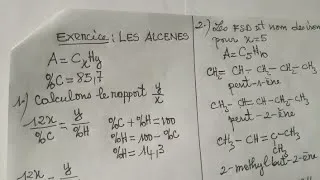 Exercice : LES ALCENES
A = CxHy
%C = 85,7
1-) Calculons le rapport y/x
12x/%C = y/%H
%C + %H = 100
%H = 100 - %C
%H = 14,3
12x = y/%H
2-) Les FSD et nom des
pour x = 5
A = C5H10
CH2 = CH - CH2 - CH2 - CH3
pent-1-ène
CH3 - CH = CH - CH2 - CH3
pent-2-ène
CH3 - CH = C - CH3
CH3
2-méthylbut-2-ène